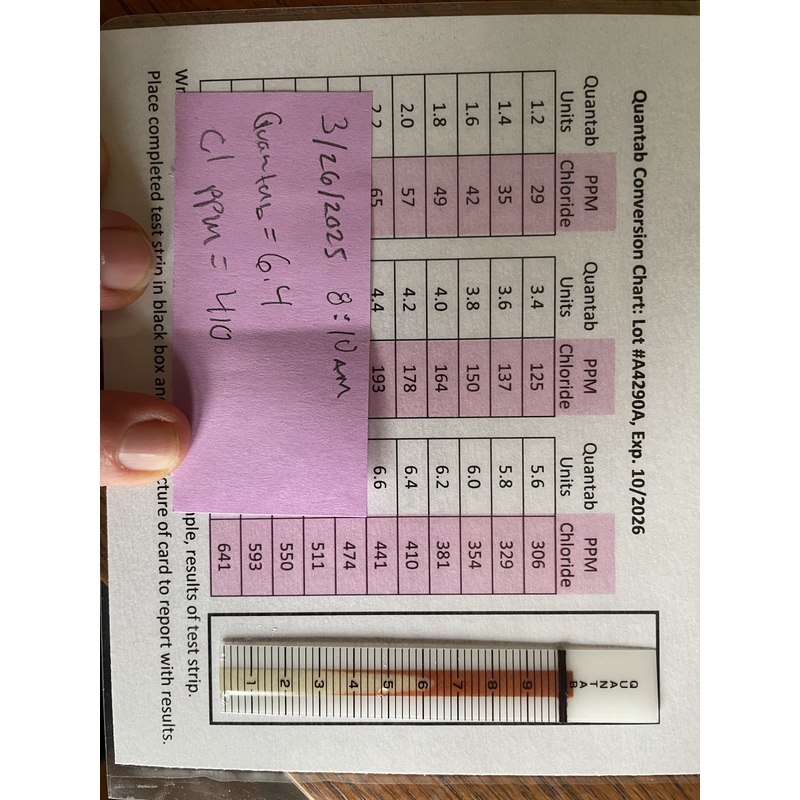 Quantab Conversion Chart: Lot #A4290A, Exp. 10/2026
Quantab Units PPM Chloride Quantab Units PPM Chloride Quantab Units PPM Chloride
1.2 29 3.4 125 5.6 306
1.4 35 3.6 137 5.8 329
1.6 42 3.8 150 6.0 354
1.8 49 4.0 164 6.2 381
2.0 57 4.2 178 6.4 410
2.2 65 4.4 193 6.6 441
474
511
550
593
641
3/26/2025 8:10 AM
Quantab = 6.4
Cl PPM = 410
results of test strip.
Place completed test strip in black box
of card to report with results.
QUANTAB
9
8
7
6
5
4
3
2
1